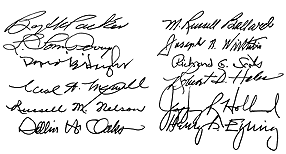 Boyd K Packer
L. Tom Perry
David B Haight
Neal A. Maxwell
Russell M. Nelson
Dallin H. Oaks
M. Russell Ballard
Joseph B. Wirthlin
Richard G. Scott
Robert D. Hales
Jeffrey R. Holland
Henry B. Eyring